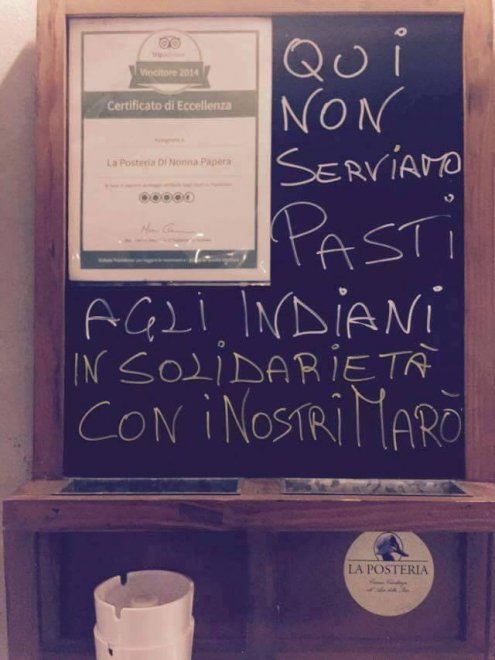 tripadvisor
Vincitore 2014
Certificato di Eccellenza
La Posteria Di Nonna Papera
QUi
NON
SERViAMO
PASTi
AGLi INDiANi
IN SOLiDARIETÀ
CON i NOSTRi MARÒ
LA POSTERIA